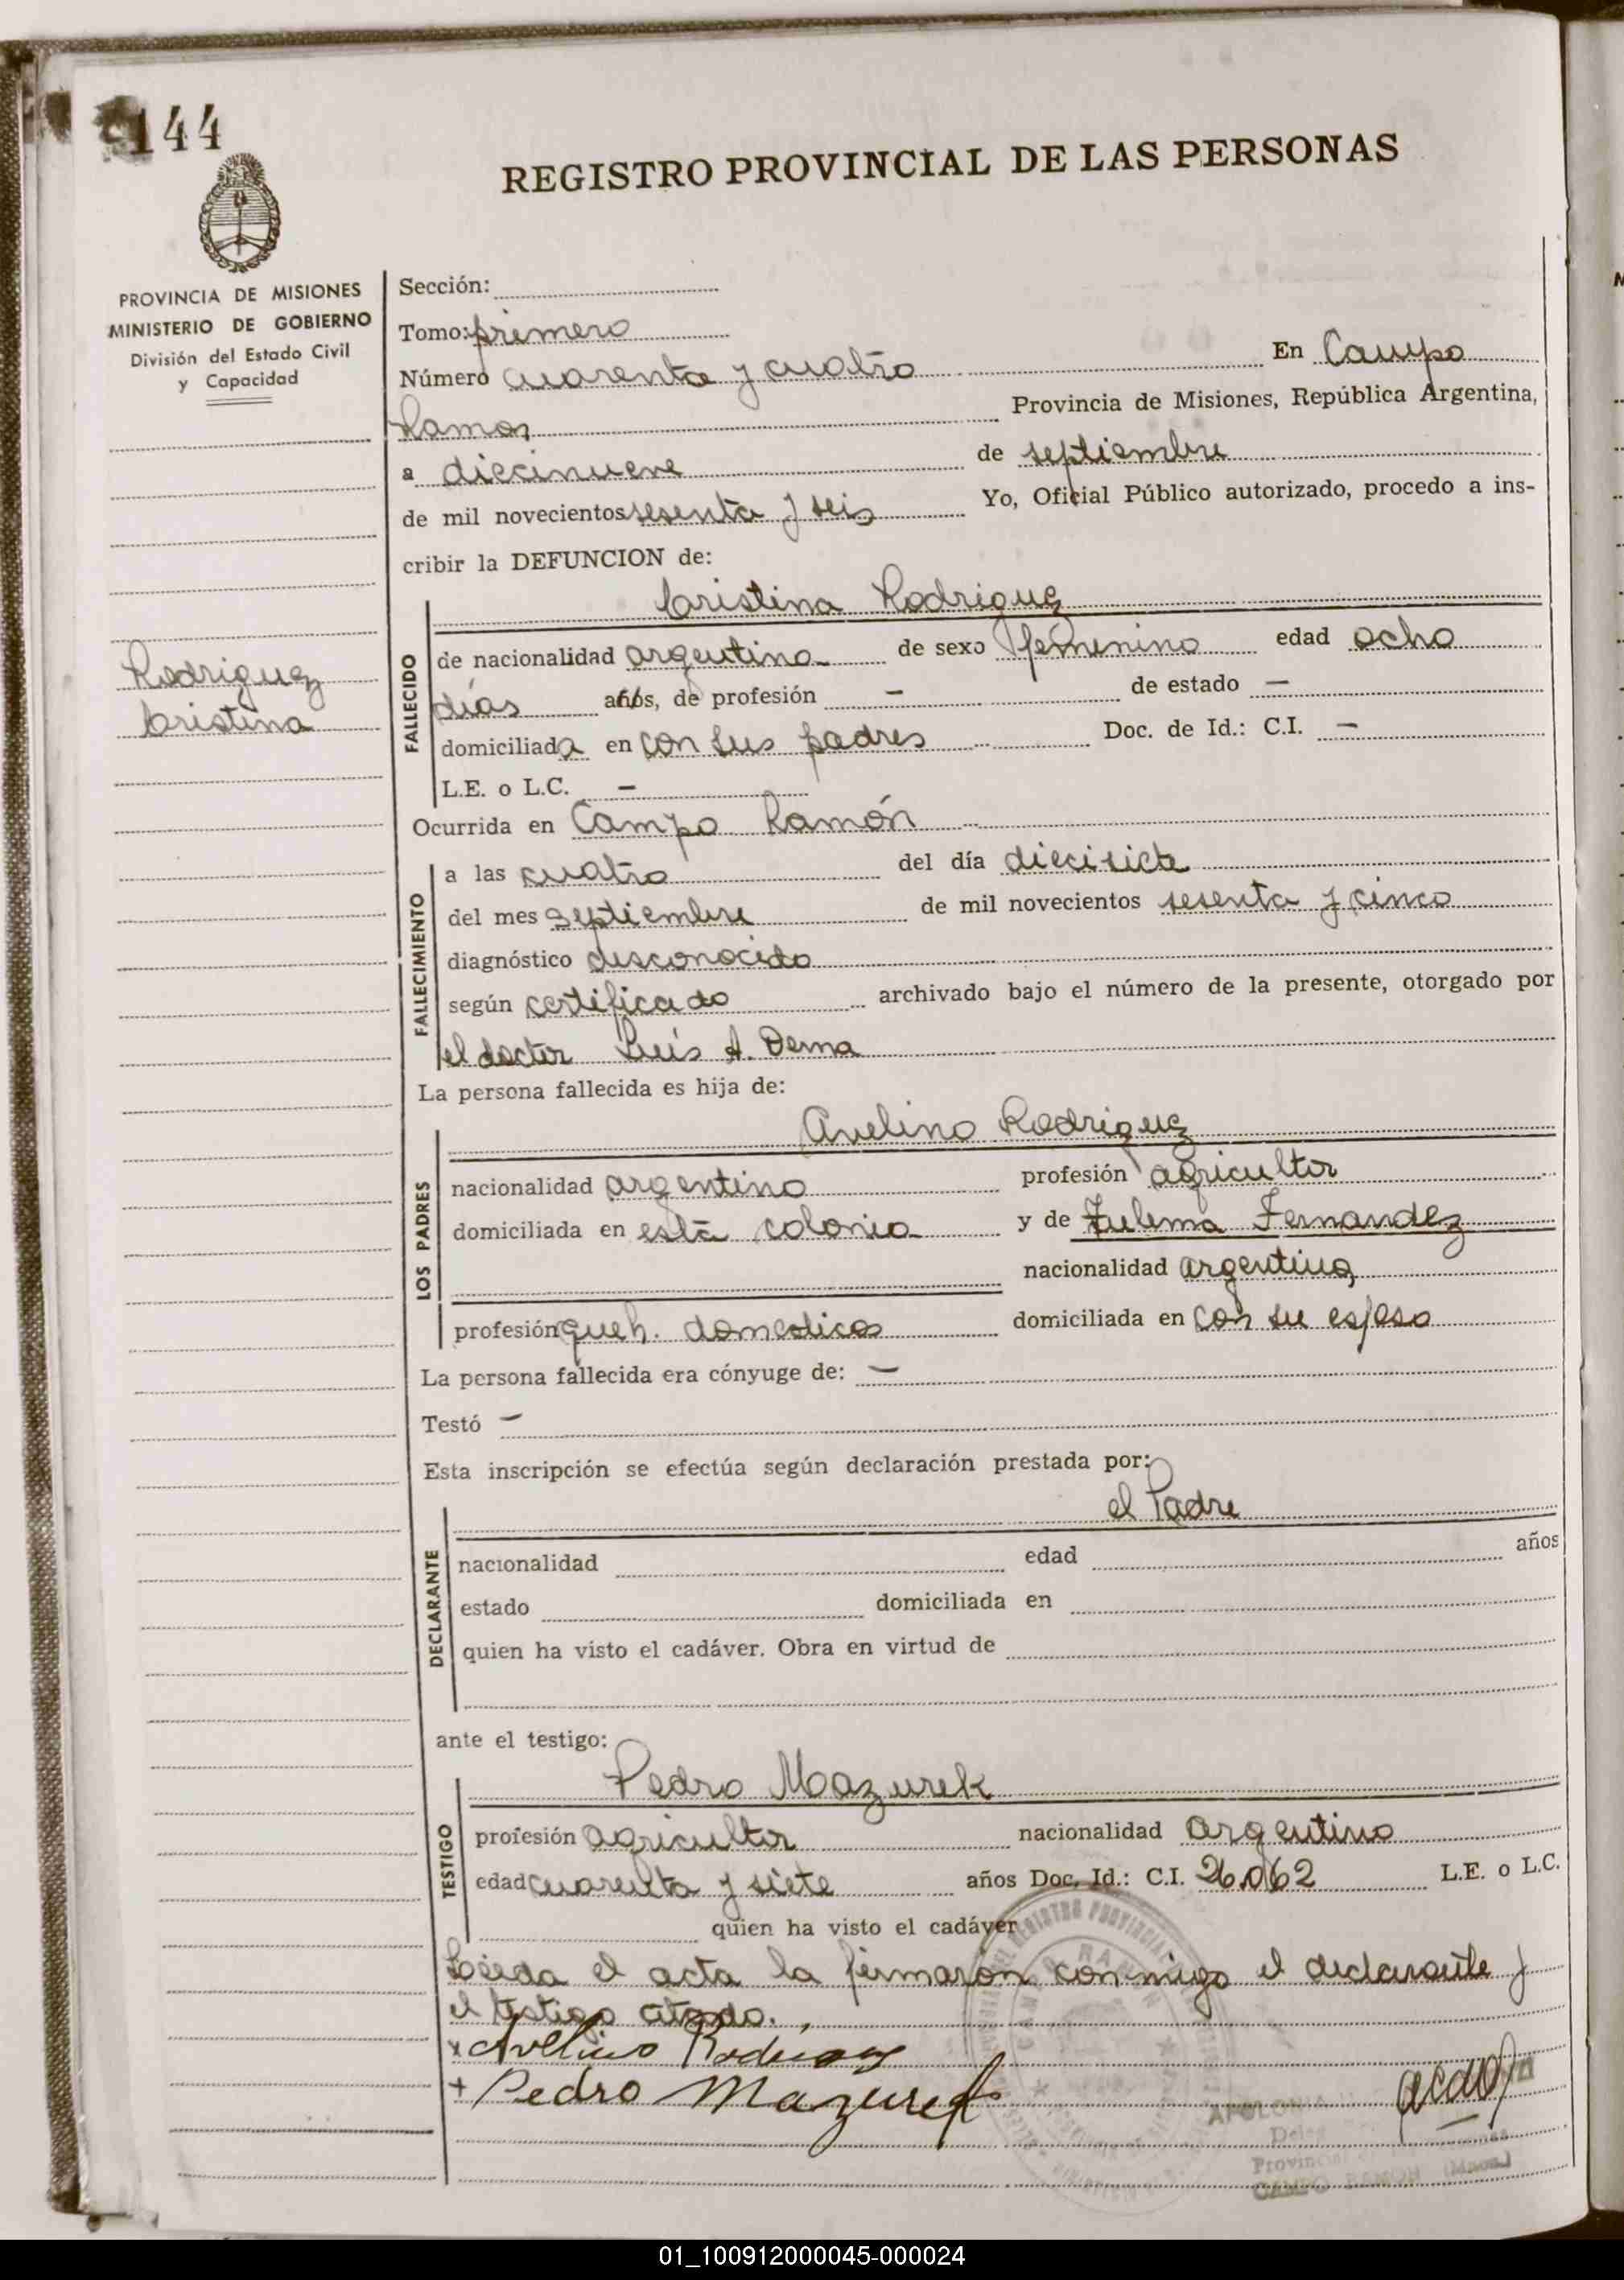 144
REGISTRO PROVINCIAL DE LAS PERSONAS
PROVINCIA DE MISIONES
MINISTERIO DE GOBIERNO
División del Estado Civil
y Capacidad
Rodriguez
Cristina
Sección:
Tomo: primero
Número cuarenta y cuatro En Campo
Ramon Provincia de Misiones, República Argentina,
a diecinueve de septiembre
de mil novecientos sesenta y seis Yo, Oficial Público autorizado, procedo a ins-
cribir la DEFUNCION de:
FALLECIDO
Cristina Rodriguez
de nacionalidad argentina de sexo femenino edad ocho
días años, de profesión – de estado –
domiciliada en con sus padres Doc. de Id.: C.I. –
L.E. o L.C. –
Ocurrida en Campo Ramón
FALLECIMIENTO
a las cuatro del día diecisiete
del mes septiembre de mil novecientos sesenta y cinco
diagnóstico desconocido
según certificado archivado bajo el número de la presente, otorgado por
el doctor Luis A. Derna
La persona fallecida es hija de:
LOS PADRES
Avelino Rodriguez
nacionalidad argentino profesión agricultor
domiciliada en esta colonia y de Zulema Fernandez
nacionalidad argentina
profesión queh. domesticos domiciliada en con su esposo
La persona fallecida era cónyuge de: –
Testó –
Esta inscripción se efectúa según declaración prestada por:
DECLARANTE
el Padre
nacionalidad edad años
estado domiciliada en
quien ha visto el cadáver. Obra en virtud de
ante el testigo:
TESTIGO
Pedro Mazurek
profesión agricultor nacionalidad argentino
edad cuarenta y siete años Doc. Id.: C.I. 26.062 L.E. o L.C.
quien ha visto el cadáver
Leida el acta la firmaron conmigo el declarante y
el testigo citado.
x Avelino Rodriguez
+ Pedro Mazurek
APOLONIA
Provincial
CAMPO RAMON (Mnes.)
01_100912000045-000024